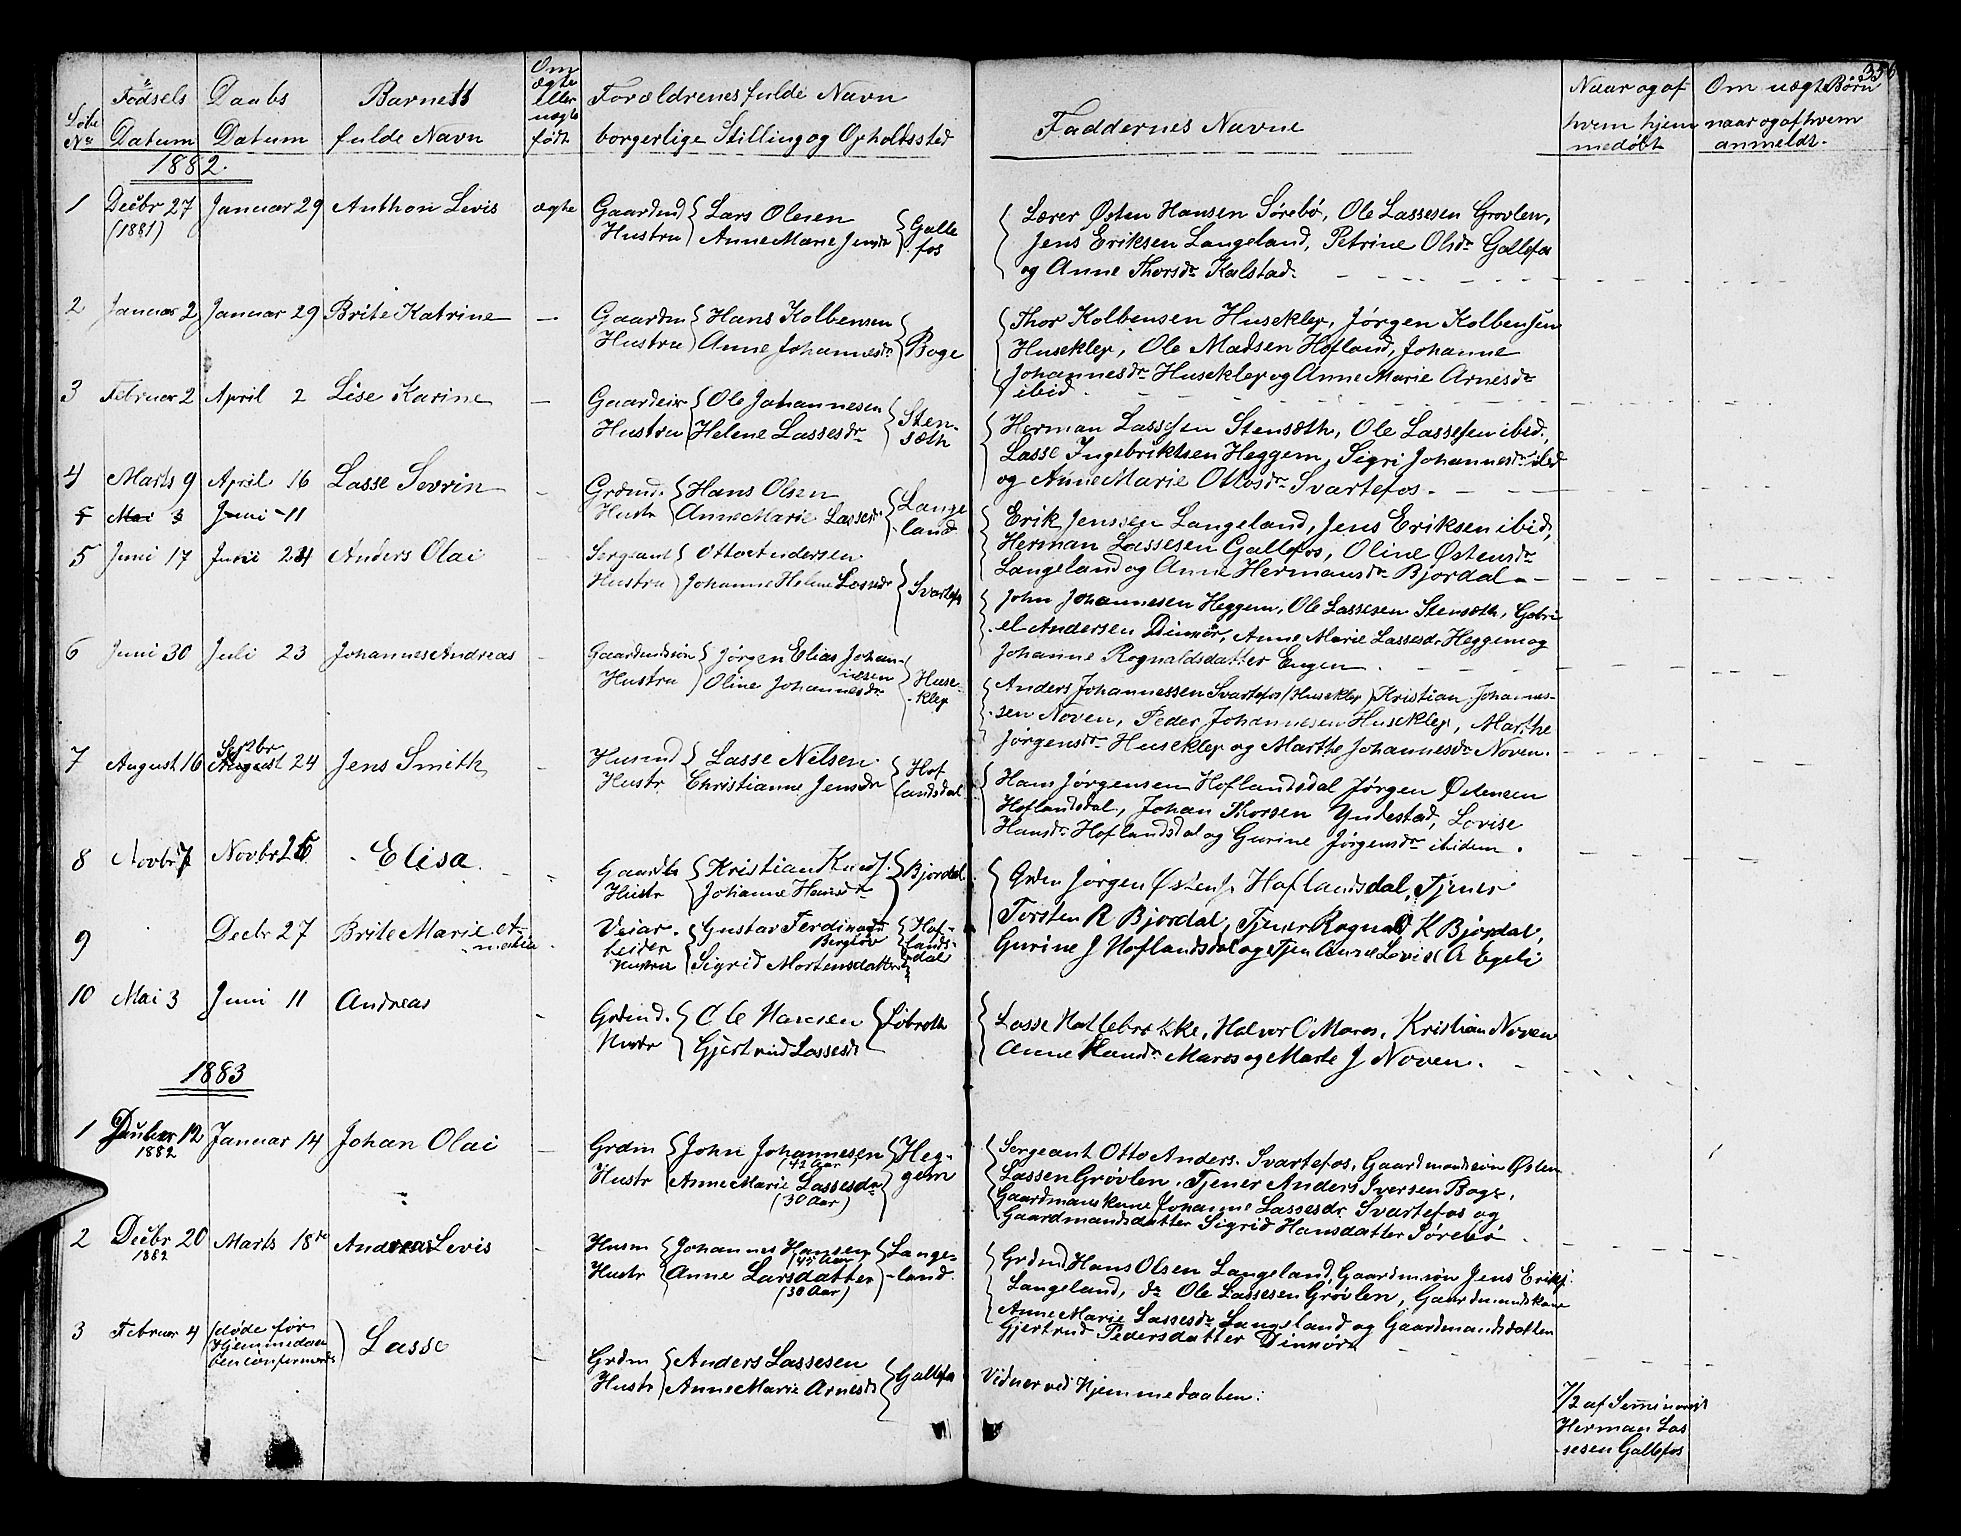 356
Løbe No
Fødsels Datum
Daabs Datum
Barnets fulde Navn
Om ægte eller uægte født
Forældrenes fulde Navn borgerlige Stilling og Opholtssted
Faddernes Navne
Naar og af hvem hjemmedøbt
Om uægte Børn naar og af hvem anmeldt.
1882.
1 Decbr 27 Januar 29 Anthon Levis ægte Gaardmd Lars Olesen Galle
(1881) Hustru Anne Marie Jensdr fos
Lærer Østen Hansen Sørebø, Ole Lassesen Grovlen,
Jens Eriksen Langeland, Petrine Olsdr Gallefos
og Anne Thorsdr Kalstad.
2 Januar 2 Januar 29 Brite Katrine — Gaardm Hans Kolbensen
Hustru Anne Johannesdr Boge
Thor Kolbensen Huseklep, Jørgen Kolbensen
Huseklep, Ole Madsen Hofland, Johanne
Johannesdr Huseklep og Anne Marie Arnesdr
ibid.
3 Februar 2 April 2 Lise Karine — Gaardeier Ole Johannesen Sten-
Hustru Helene Lassesdr sæth
Herman Lassesen Stensæth, Ole Lassesen ibid.,
Lasse Ingebriktsen Heggem, Sigri Johannesdr ibid
og Anne Marie Ottosdr Svartefos.
4 Marts 9 April 16 Lasse Sevrin — Grdmd. Hans Olsen Lange
Hustr Anne Marie Lassesdr land
5 Mai 3 Juni 11
Erik Jenssen Langeland, Jens Eriksen ibid,
Herman Lassesen Gallefos, Oline Østensdr
Langeland og Anne Hermansdr Bjordal
5 Juni 17 Juni 24 Anders Olai Sergeant Otto Andersen
Hustru Johanne Helene Lassesdr Svartefos
John Johannesen Heggem, Ole Lassesen Stensæth, Gabri
-el Andersen Dimnør, Anne Marie Lassesdr Heggem og
Johanne Rognaldsdatter Engen.
6 Juni 30 Juli 23 Johannes Andreas — Gaardmdssøn Jørgen Elias Johan-
nesen
Hustru Oline Johannesdr Huse-
klep
Anders Johannessen Svartefos (Huseklep) Kristian Johannes-
-sen Noven, Peder Johannesen Huseklep, Marthe
Jørgensdr Huseklep og Marthe Johannesdr Noven.
7 August 16 Septbr August 24 Jens Smith — Husmd Lasse Nilsen Hof
Hustr Christianne Jensdr landsdal
Hans Jørgensen Hoflandsdal Jørgen Østensen
Hoflandsdal, Johan Thorsen Yndestad, Lovise
Hansdr Hoflandsdal og Gurine Jørgensdr ibidem.
8 Novbr 7 Novbr 26 Elisa Gaardbr Kristian Knuds. Bjordal
Hustr Johanne Hansdr
Grdm Jørgen Østens. Hoflandsdal, Tjener
Torsten R Bjordal, Tjener Rognald K Bjordal,
Gurine J Hoflandsdal og Tjen Anne Lovise A Egeli
9 Decbr 27 Brite Marie Veiar- Gustav Ferdinand Hof-
beider Berglöv lands-
Hustru Sigrid Mortensdatter dal
10 Mai 3 Juni 11 Andreas — Grdmd. Ole Hansen Løbroth
Hustr Gjertrud Lassesdr
Lasse Hatlebrekke, Halvor O Maros, Kristian Noven
Anne Hansdr Maros og Marte J Noven.
1883
1 Decbr 12 Januar 14 Johan Olai — Grdm John Johannesen Heg-
1882 (42 Aar)
Hustr Anne Marie Lassesdr gem
(30 Aar)
Sergeant Otto Anders. Svartefos, Gaardmandssøn Østen
Lassen Grøvlen, Tjener Anders Iversen Boge,
Gaardmanskone Johanne Lassesdr Svartefos og
Gaardmandsdatter Sigrid Hansdatter Sørebø
2 Decbr 20 Marts 18de Andreas Levis — Husm Johannes Hansen Lange-
1882 (45 Aar)
Hustr Anne Larsdatter -land.
(30 Aar)
Grdmd Hans Olsen Langeland, Gaardmsøn Jens Eriks.
Langeland, do Ole Lassesen Grøvlen, Gaardmandskone
Anne Marie Lassesdr Langeland og Gaardmandsdatter
Gjertrud Pedersdatter Dimnør
3 Februar 4 (døde før Lasse — Grdm Anders Lassesen Gallefos
Hjemmedaa-
ben confirmeredes) Hustr Anne Marie Arnesdr
Vidner ved Hjemmedaaben:
7/2 af Seminarist
Herman Las
-sesen Gallefos